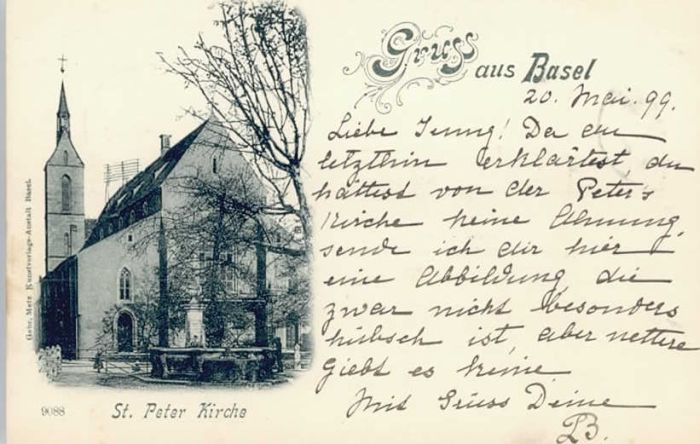 Gruss
aus Basel
20. Mai. 99.
Liebe Jenny! Da du
letzthin erklärtest du
hättest von der Peters
Kirche keine Ahnung,
sende ich dir hier
eine Abbildung, die
zwar nicht besonders
hübsch ist, aber nettere
giebt es keine.
Mit Gruss Deine
Gebr. Metz Kunstverlags-Anstalt Basel.
9088
St. Peter Kirche